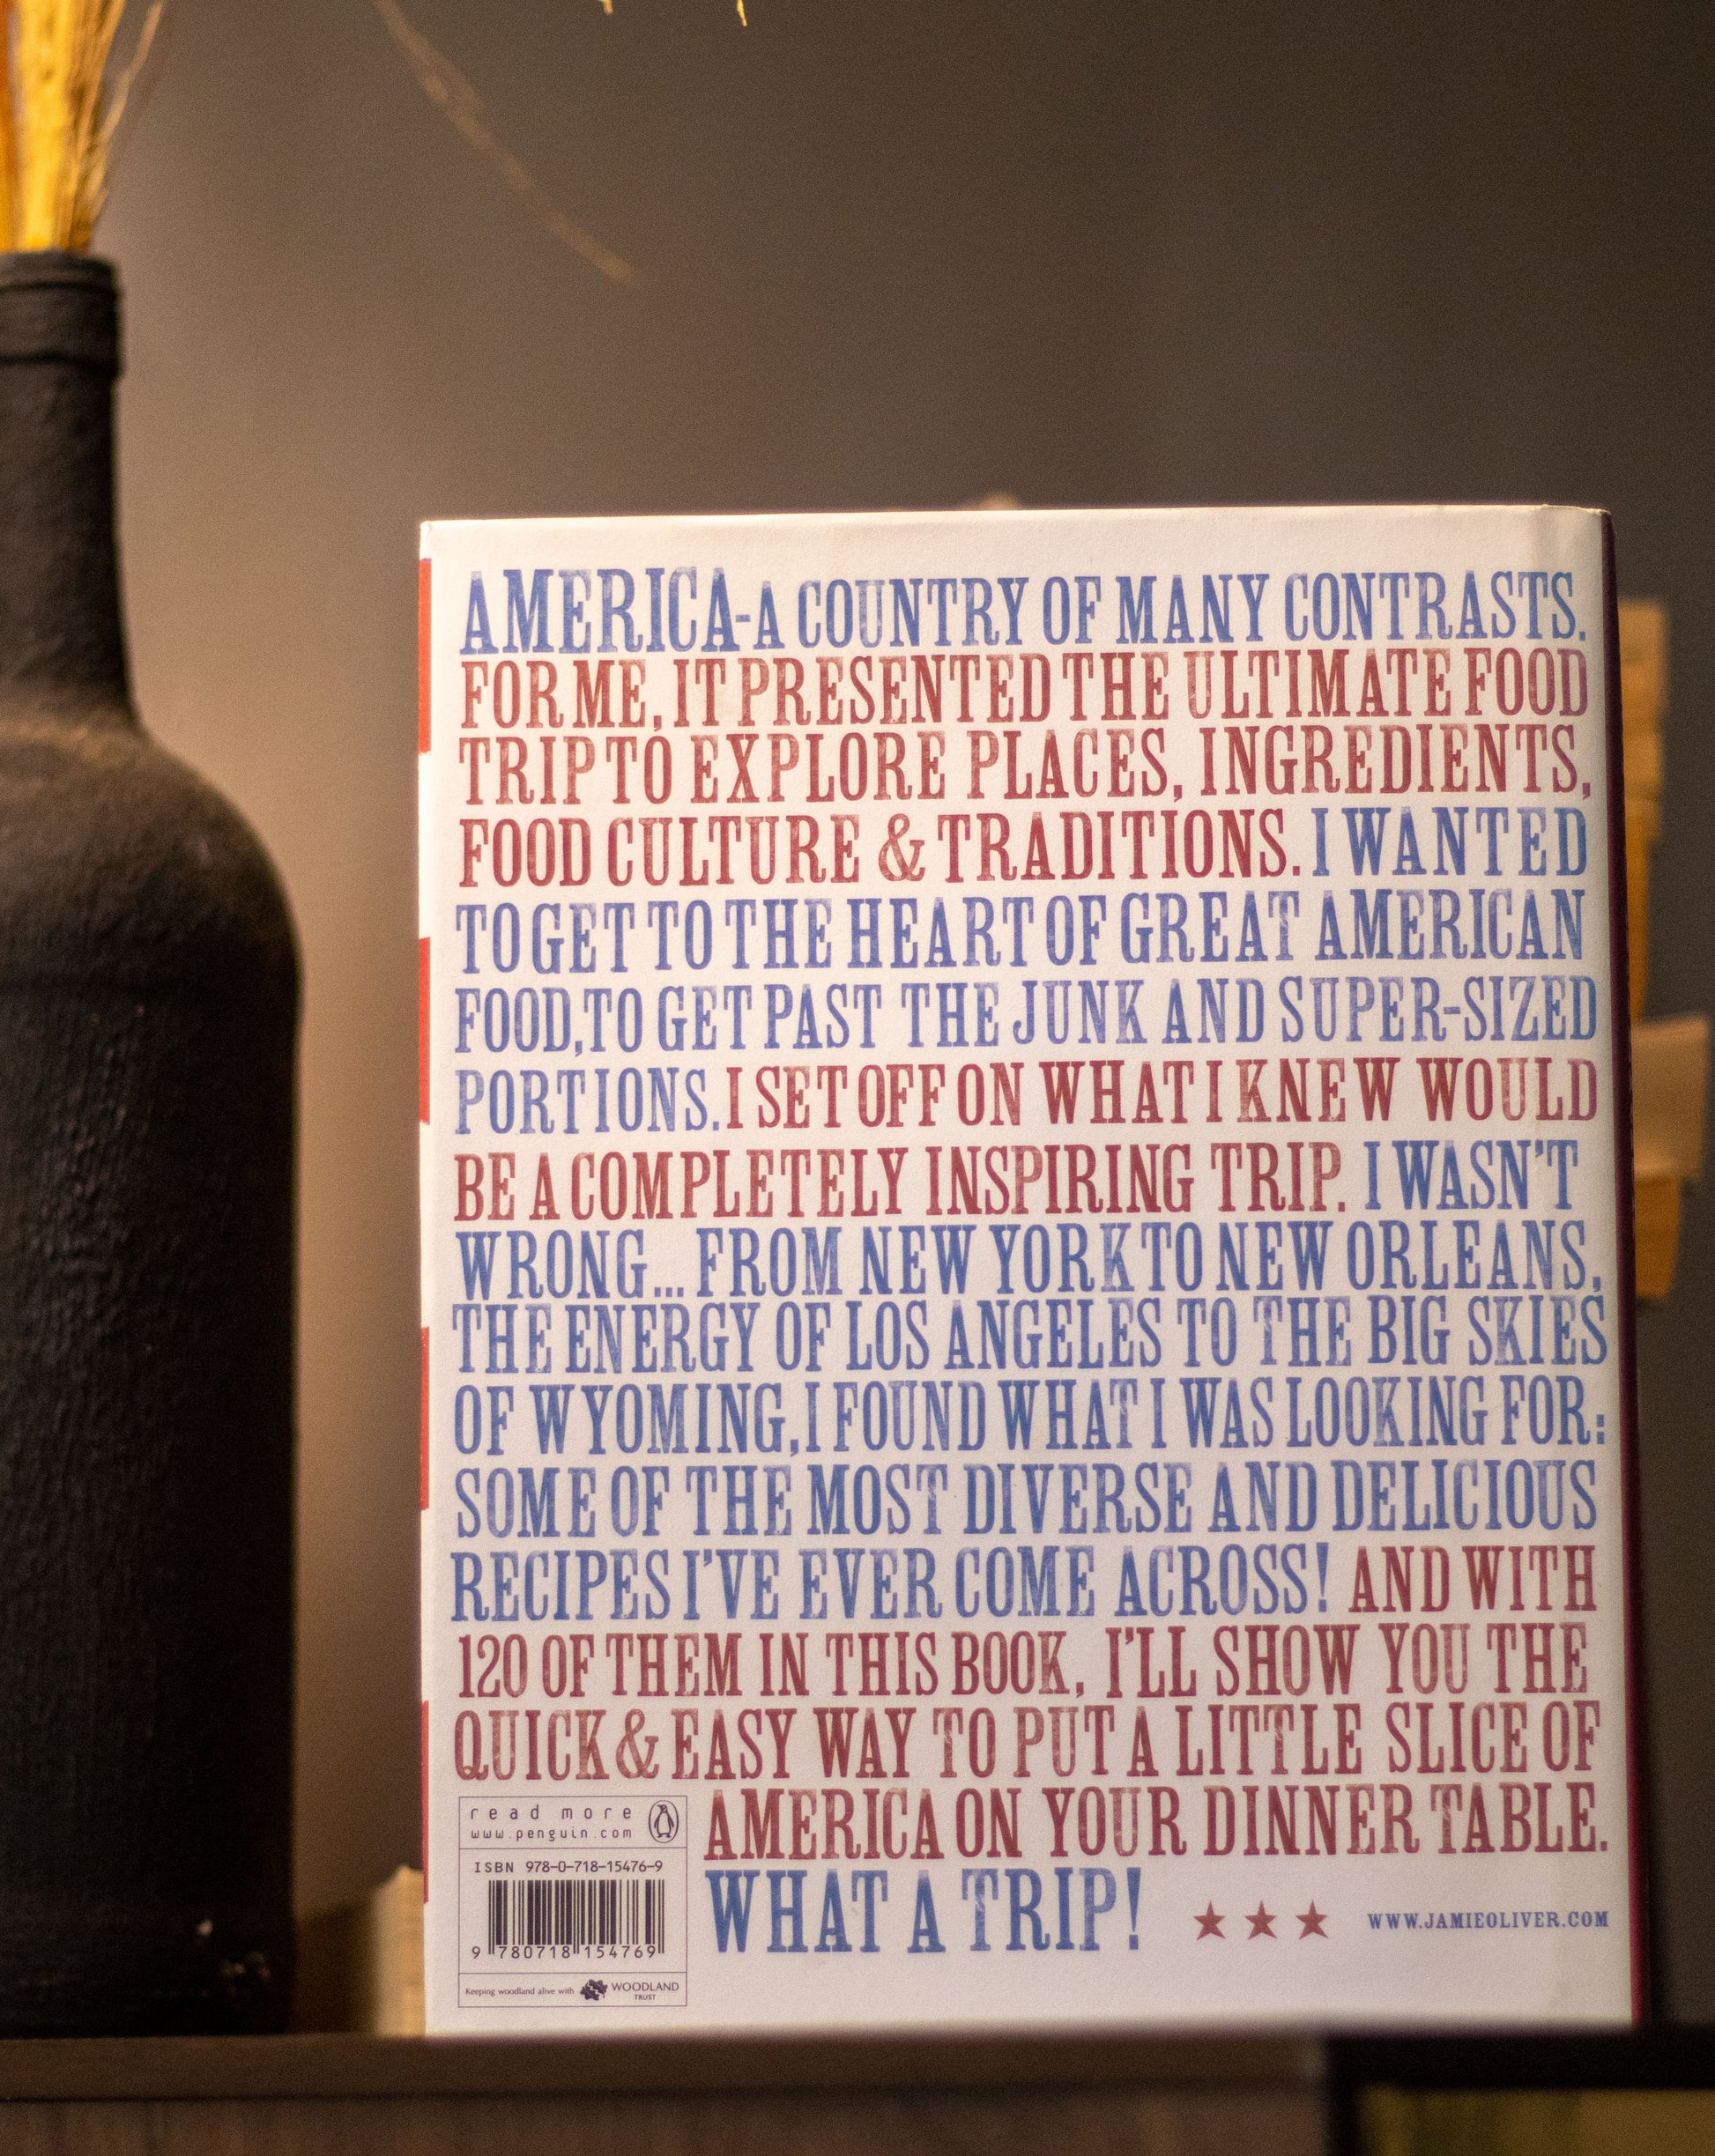 AMERICA-A COUNTRY OF MANY CONTRASTS.
FOR ME, IT PRESENTED THE ULTIMATE FOOD
TRIP TO EXPLORE PLACES, INGREDIENTS,
FOOD CULTURE & TRADITIONS. I WANTED
TO GET TO THE HEART OF GREAT AMERICAN
FOOD, TO GET PAST THE JUNK AND SUPER-SIZED
PORTIONS. I SET OFF ON WHAT I KNEW WOULD
BE A COMPLETELY INSPIRING TRIP. I WASN'T
WRONG... FROM NEW YORK TO NEW ORLEANS,
THE ENERGY OF LOS ANGELES TO THE BIG SKIES
OF WYOMING, I FOUND WHAT I WAS LOOKING FOR:
SOME OF THE MOST DIVERSE AND DELICIOUS
RECIPES I'VE EVER COME ACROSS! AND WITH
120 OF THEM IN THIS BOOK, I'LL SHOW YOU THE
QUICK & EASY WAY TO PUT A LITTLE SLICE OF
AMERICA ON YOUR DINNER TABLE.
WHAT A TRIP!
www.jamieoliver.com
read more
www.penguin.com
ISBN 978-0-718-15476-9
9 780718 154769
Keeping woodland alive with WOODLAND
TRUST